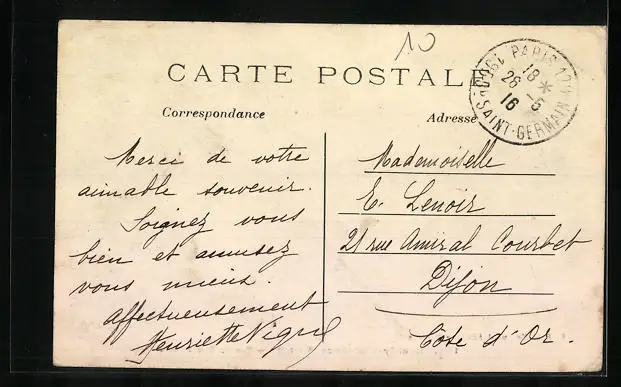 10
CARTE POSTALE
PARIS
18 *
26 - 5
16
SAINT-GERMAIN
Correspondance
Adresse
Merci de votre
aimable souvenir.
Soignez vous
bien et amusez
vous mieux.
affectueusement
Henriette
Mademoiselle
E. Lenoir
21 rue Amiral Courbet
Dijon
Côte d'Or.